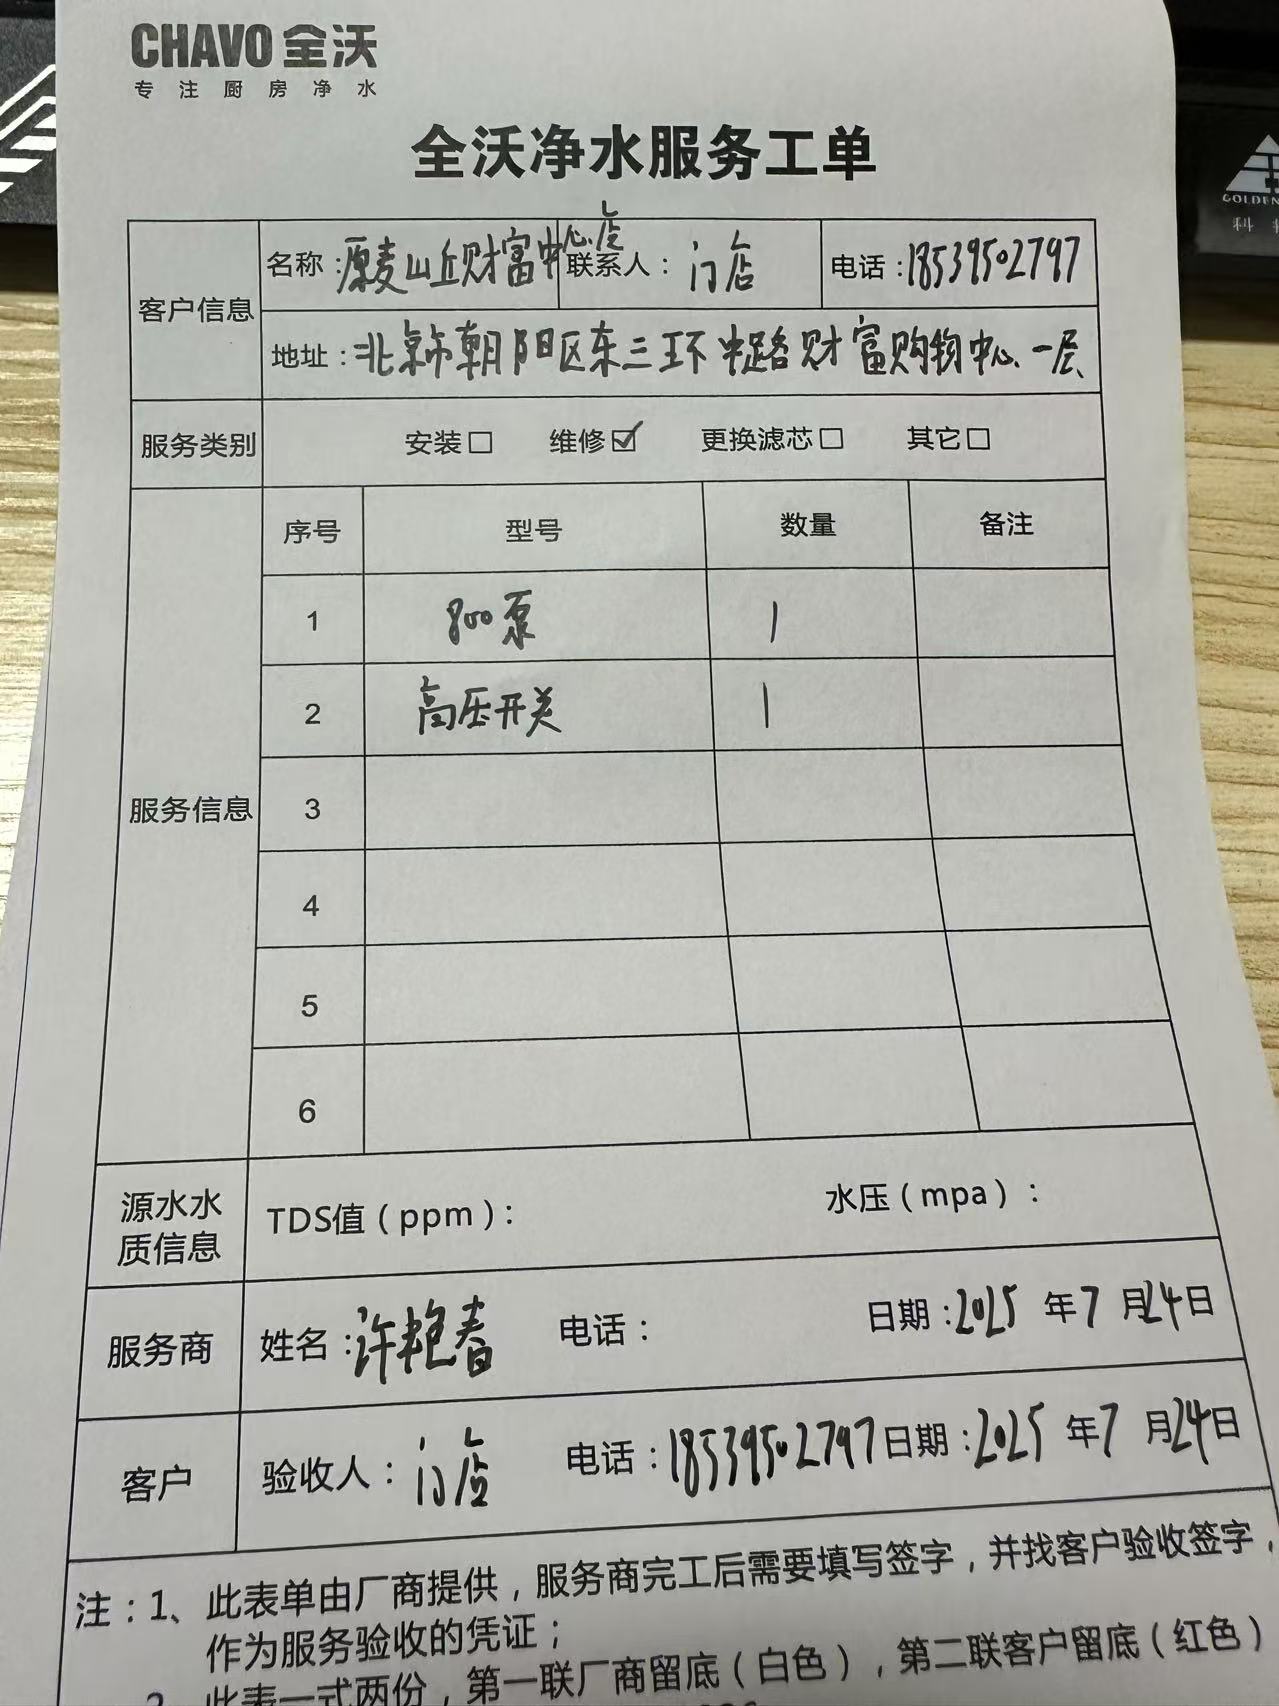 CHAVO 全沃
专注厨房净水
全沃净水服务工单
客户信息
名称：原麦山丘财富中心店 联系人：门店 电话：18539502797
地址：北京市朝阳区东三环中路财富购物中心一层
服务类别 安装☐ 维修☑ 更换滤芯☐ 其它☐
服务信息
序号 型号 数量 备注
1 800泵 1
2 高压开关 1
3
4
5
6
源水水质信息 TDS值（ppm）： 水压（mpa）：
服务商 姓名：许艳春 电话： 日期：2025年7月24日
客户 验收人：门店 电话：18539502797 日期：2025年7月24日
注：1、此表单由厂商提供，服务商完工后需要填写签字，并找客户验收签字，
作为服务验收的凭证；
2、此表一式两份，第一联厂商留底（白色），第二联客户留底（红色）
GOLDEN